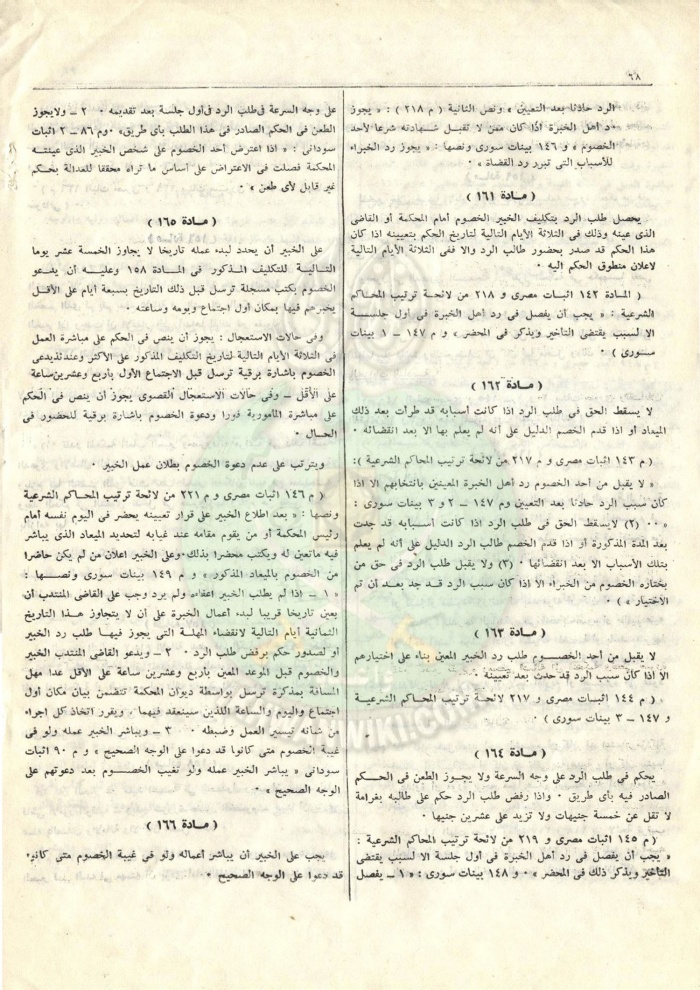 ٦٨
الرد حادثا بعد التعيين » ونص الثانية ( م ٢١٨ ) : « يجوز
رد أهل الخبرة اذا كان ممن لا تقبل شهادته شرعا لأحد
الخصوم » و ١٤٦ بينات سورى ونصها : « يجوز رد الخبراء
للأسباب التى تبرر رد القضاة » ٠
( مادة ١٦١ )
يحصل طلب الرد بتكليف الخبير الخصوم أمام المحكمة أو القاضى
الذى عينه وذلك فى الثلاثة الأيام التالية لتاريخ الحكم بتعيينه اذا كان
هذا الحكم قد صدر بحضور طالب الرد والا ففى الثلاثة الأيام التالية
لاعلان منطوق الحكم اليه ٠
( المادة ١٤٢ اثبات مصرى و ٢١٨ من لائحة ترتيب المحاكم
الشرعية : « يجب أن يفصل فى رد أهل الخبرة فى أول جلسسة
الا لسبب يقتضى التأخير ويذكر فى المحضر » و م ١٤٧ ــ ١ بينات
سسورى ) ٠
( مادة ١٦٢ )
لا يسقط الحق فى طلب الرد اذا كانت أسبابه قد طرأت بعد ذلك
الميعاد أو اذا قدم الخصم الدليل على أنه لم يعلم بها الا بعد انقضائه ٠
( م ١٤٣ اثبات مصرى و م ٢١٧ من لائحة ترتيب المحاكم الشرعية ):
« لا يقبل من أحد الخصوم رد أهل الخبرة المعينين بانتخابهم الا اذا
كان سبب الرد حادثا بعد التعيين وم ١٤٧ ــ ٢ و ٣ بينات سورى :
« ٠٠ (٢) لايسقط الحق فى طلب الرد اذا كانت أسبابه قد جدت
بعد المدة المذكورة أو اذا قدم الخصم طالب الرد الدليل على أنه لم يعلم
بتلك الأسباب الا بعد انقضائها ٠ (٣) ولا يقبل طلب الرد فى حق من
يختاره الخصوم من الخبراء الا اذا كان سبب الرد قد جد بعد أن تم
الأختيار » ) ٠
( مادة ١٦٣ )
لا يقبل من أحد الخصوم طلب رد الخبير المعين بناء على اختيارهم
الا اذا كان سبب الرد قد حدث بعد تعيينه ٠
( م ١٤٤ اثبات مصرى و ٢١٧ لائحة ترتيب المحاكم الشرعية
و ١٤٧ ــ ٣ بينات سورى ) ٠
( مادة ١٦٤ )
يحكم فى طلب الرد على وجه السرعة ولا يجوز الطعن فى الحكم
الصادر فيه بأى طريق ٠ واذا رفض طلب الرد حكم على طالبه بغرامة
لا تقل عن خمسة جنيهات ولا تزيد على عشرين جنيها ٠
( م ١٤٥ اثبات مصرى و ٢١٩ من لائحة ترتيب المحاكم الشرعية :
« يجب أن يفصل فى رد أهل الخبرة فى أول جلسة الا لسبب يقتضى
التأخير ويذكر ذلك فى المحضر » ٠ و ١٤٨ بينات سورى : « ١ ــ يفصل
على وجه السرعة فى طلب الرد فى أول جلسة بعد تقديمه ٠ ٢ ــ ولايجوز
الطعن فى الحكم الصادر فى هذا الطلب بأى طريق» ٠ وم ٨٦ ــ ٢ اثبات
سودانى : « اذا اعترض أحد الخصوم على شخص الخبير الذى عينته
المحكمة فصلت فى الاعتراض على أساس ما تراه محققا للعدالة بحكم
غير قابل لأى طعن » ٠
( مادة ١٦٥ )
على الخبير أن يحدد لبدء عمله تاريخا لا يجاوز الخمسة عشر يوما
التسالية للتكليف المذكور فى المسادة ١٥٨ وعليسه أن يدعو
الخصوم بكتب مسجلة ترسل قبل ذلك التاريخ بسبعة أيام على الأقل
يخبرهم فيها بمكان أول اجتماع ويومه وساعته ٠
وفى حالات الاستعجال : يجوز أن ينص فى الحكم على مباشرة العمل
فى الثلاثة الأيام التالية لتاريخ التكليف المذكور على الأكثر وعندئذيدعى
الخصوم باشارة برقية ترسل قبل الاجتماع الأول بأربع وعشرين ساعة
على الأقل ــ وفى حالات الاستعجال القصوى يجوز أن ينص فى الحكم
على مباشرة المأمورية فورا ودعوة الخصوم باشارة برقية للحضور فى
الحسال ٠
ويترتب على عدم دعوة الخصوم بطلان عمل الخبير ٠
( م ١٤٦ اثبات مصرى و م ٢٢١ من لائحة ترتيب المحاكم الشرعية
ونصها : « بعد اطلاع الخبير على قرار تعيينه يحضر فى اليوم نفسه أمام
رئيس المحكمة أو من يقوم مقامه عند غيابه لتحديد الميعاد الذى يباشر
فيه ماتعين له ويكتب محضرا بذلك ٠ وعلى الخبير اعلان من لم يكن حاضرا
من الخصوم بالميعاد المذكور » و م ١٤٩ بينات سورى ونصها :
« ١ ــ اذا لم يطلب الخبير اعفاءه ولم يرد وجب على القاضى المنتدب أن
يعين تاريخا قريبا لبدء أعمال الخبرة على أن لا يتجاوز هذا التاريخ
الثمانية أيام التالية لانقضاء المهلة التى يجوز فيها طلب رد الخبير
أو لصدور حكم برفض طلب الرد ٠ ٢ ــ ويدعو القاضى المنتدب الخبير
والخصوم قبل الموعد المعين بأربع وعشرين ساعة على الأقل عدا مهل
المسافة بمذكرة ترسل بواسطة ديوان المحكمة تتضمن بيان مكان أول
اجتماع واليوم والساعة اللذين سينعقد فيهما ٠ ويقرر اتخاذ كل اجراء
من شأنه تيسير العمل وضبطه ٠ ٣ ــ ويباشر الخبير عمله ولو فى
غيبة الخصوم متى كانوا قد دعوا على الوجه الصحيح » و م ٩٠ اثبات
سودانى « يباشر الخبير عمله ولو تغيب الخصسوم بعد دعوتهم على
الوجه الصحيح » ٠
( مادة ١٦٦ )
يجب على الخبير أن يباشر أعماله ولو فى غيبة الخصوم متى كانوا
قد دعوا على الوجه الصحيح ٠